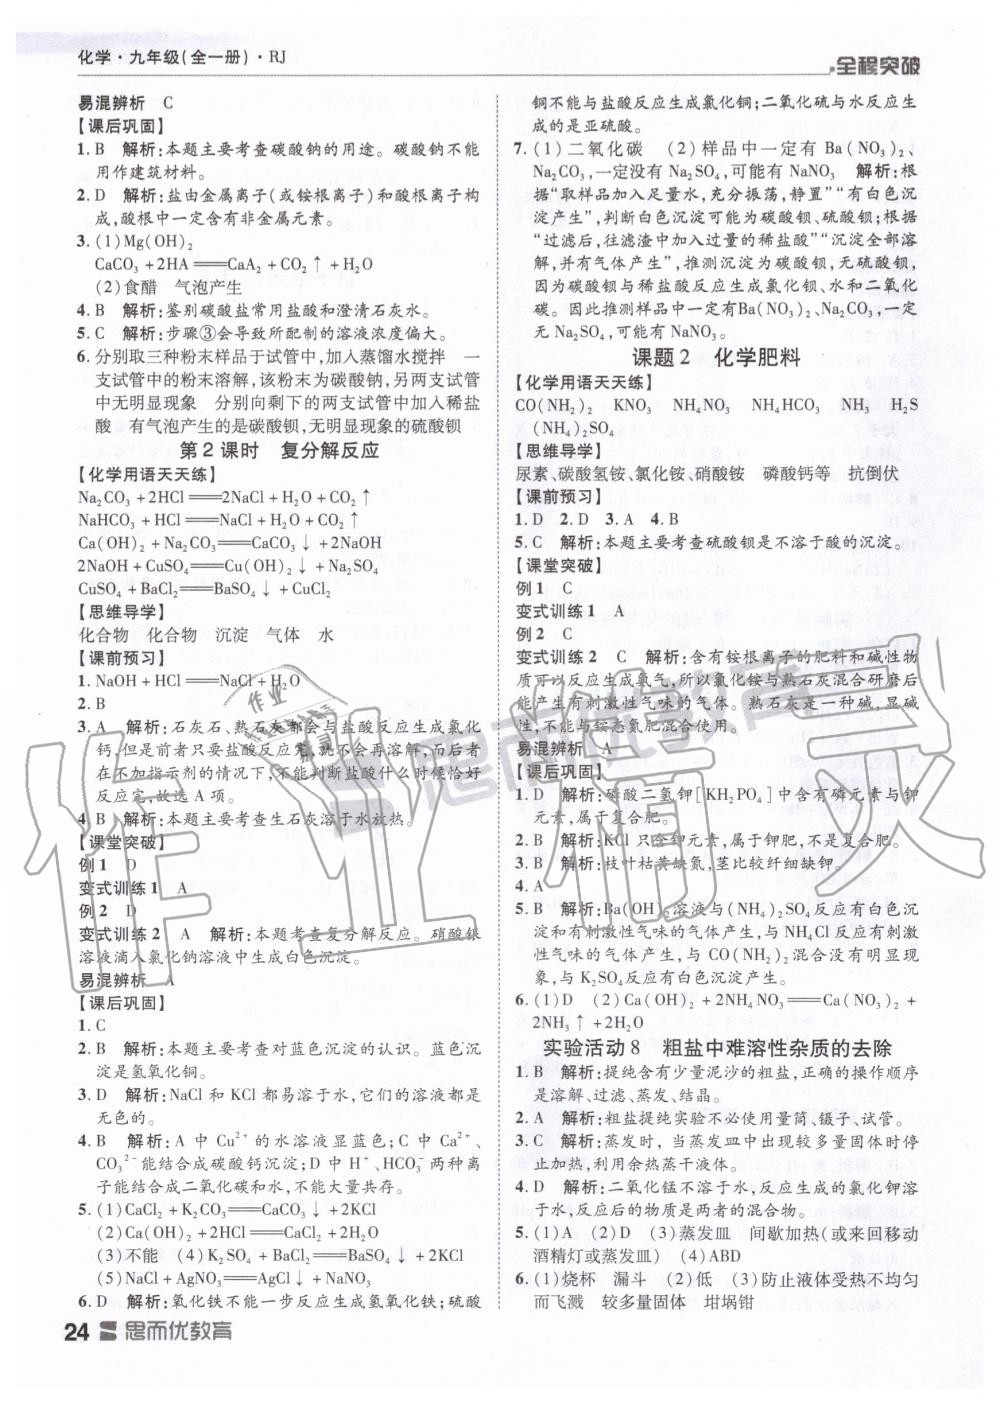 化学·九年级(全一册)·RJ
全程突破
易混辨析 C
【课后巩固】
1. B 解析:本题主要考查碳酸钠的用途。碳酸钠不能
用作建筑材料。
2. D 解析:盐由金属离子(或铵根离子)和酸根离子构
成,酸根中一定含有非金属元素。
3. (1)Mg(OH)₂
CaCO₃+2HA══CaA₂+CO₂↑+H₂O
(2)食醋 气泡产生
4. B 解析:鉴别碳酸盐常用盐酸和澄清石灰水。
5. C 解析:步骤③会导致所配制的溶液浓度偏大。
6. 分别取三种粉末样品于试管中,加入蒸馏水搅拌 一
支试管中的粉末溶解,该粉末为碳酸钠,另两支试管
中无明显现象 分别向剩下的两支试管中加入稀盐
酸 有气泡产生的是碳酸钡,无明显现象的硫酸钡
第2课时 复分解反应
【化学用语天天练】
Na₂CO₃+2HCl══2NaCl+H₂O+CO₂↑
NaHCO₃+HCl══NaCl+H₂O+CO₂↑
Ca(OH)₂+Na₂CO₃══CaCO₃↓+2NaOH
2NaOH+CuSO₄══Cu(OH)₂↓+Na₂SO₄
CuSO₄+BaCl₂══BaSO₄↓+CuCl₂
【思维导学】
化合物 化合物 沉淀 气体 水
【课前预习】
1. NaOH+HCl══NaCl+H₂O
2. B
3. A 解析:石灰石、熟石灰都会与盐酸反应生成氯化
钙,但是前者只要盐酸反应完,就不会再溶解;而后者
在不加指示剂的情况下,不能判断盐酸什么时候恰好
反应完,故选A项。
4. B 解析:本题主要考查生石灰溶于水放热。
【课堂突破】
例1 D
变式训练1 A
例2 D
变式训练2 A 解析:本题考查复分解反应。硝酸银
溶液滴入氯化钠溶液中生成白色沉淀。
易混辨析 A
【课后巩固】
1. C
2. B 解析:本题主要考查对蓝色沉淀的认识。蓝色沉
淀是氢氧化铜。
3. D 解析:NaCl和KCl都易溶于水,它们的溶液都是
无色的。
4. B 解析:A中Cu²⁺的水溶液显蓝色;C中Ca²⁺、
CO₃²⁻能结合成碳酸钙沉淀;D中H⁺、HCO₃⁻两种离
子能结合成二氧化碳和水,不能大量共存。
5. (1)CaCl₂+K₂CO₃══CaCO₃↓+2KCl
(2)Ca(OH)₂+2HCl══CaCl₂+2H₂O
(3)不能 (4)K₂SO₄+BaCl₂══BaSO₄↓+2KCl
(5)NaCl+AgNO₃══AgCl↓+NaNO₃
6. D 解析:氧化铁不能一步反应生成氢氧化铁;硫酸
铜不能与盐酸反应生成氯化铜;二氧化硫与水反应生
成的是亚硫酸。
7. (1)二氧化碳 (2)样品中一定有Ba(NO₃)₂、
Na₂CO₃,一定没有Na₂SO₄,可能有NaNO₃ 解析:根
据“取样品加入足量水,充分振荡,静置”“有白色沉
淀产生”,判断白色沉淀可能为碳酸钡、硫酸钡;根据
“过滤后,往滤渣中加入过量的稀盐酸”“沉淀全部溶
解,并有气体产生”,推测沉淀为碳酸钡,无硫酸钡,
因为碳酸钡与稀盐酸反应生成氯化钡、水和二氧化
碳。因此推测样品中一定有Ba(NO₃)₂、Na₂CO₃,一定
无Na₂SO₄,可能有NaNO₃。
课题2 化学肥料
【化学用语天天练】
CO(NH₂)₂ KNO₃ NH₄NO₃ NH₄HCO₃ NH₃ H₂S
(NH₄)₂SO₄
【思维导学】
尿素、碳酸氢铵、氯化铵、硝酸铵 磷酸钙等 抗倒伏
【课前预习】
1. D 2. D 3. A 4. B
5. C 解析:本题主要考查硫酸钡是不溶于酸的沉淀。
【课堂突破】
例1 C
变式训练1 A
例2 C
变式训练2 C 解析:含有铵根离子的肥料和碱性物
质可以反应生成氨气,所以氯化铵与熟石灰混合研磨后
能产生有刺激性气味的气体。熟石灰是一种碱,显碱
性,不能与铵态氮肥混合使用。
易混辨析 A
【课后巩固】
1. D 解析:磷酸二氢钾[KH₂PO₄]中含有磷元素与钾
元素,属于复合肥。
2. B 解析:KCl只含钾元素,属于钾肥,不是复合肥。
3. B 解析:枝叶枯黄缺氮,茎比较纤细缺钾。
4. A
5. B 解析:Ba(OH)₂溶液与(NH₄)₂SO₄反应有白色沉
淀和有刺激性气味的气体产生,与NH₄Cl反应有刺激
性气味的气体产生,与CO(NH₂)₂混合没有明显现
象,与K₂SO₄反应有白色沉淀产生。
6. (1)D (2)Ca(OH)₂+2NH₄NO₃══Ca(NO₃)₂+
2NH₃↑+2H₂O
实验活动8 粗盐中难溶性杂质的去除
1. B 解析:提纯含有少量泥沙的粗盐,正确的操作顺序
是溶解、过滤、蒸发、结晶。
2. A 解析:粗盐提纯实验不必使用量筒、镊子、试管。
3. C 解析:蒸发时,当蒸发皿中出现较多量固体时停
止加热,利用余热蒸干液体。
4. D 解析:二氧化锰不溶于水,反应生成的氯化钾溶
于水,反应后的物质是两者的混合物。
5. (1)A (2)D (3)蒸发皿 间歇加热(或来回移动
酒精灯或蒸发皿) (4)ABD
6. (1)烧杯 漏斗 (2)低 (3)防止液体受热不均匀
而飞溅 较多量固体 坩埚钳
24 思而优教育
作业精灵